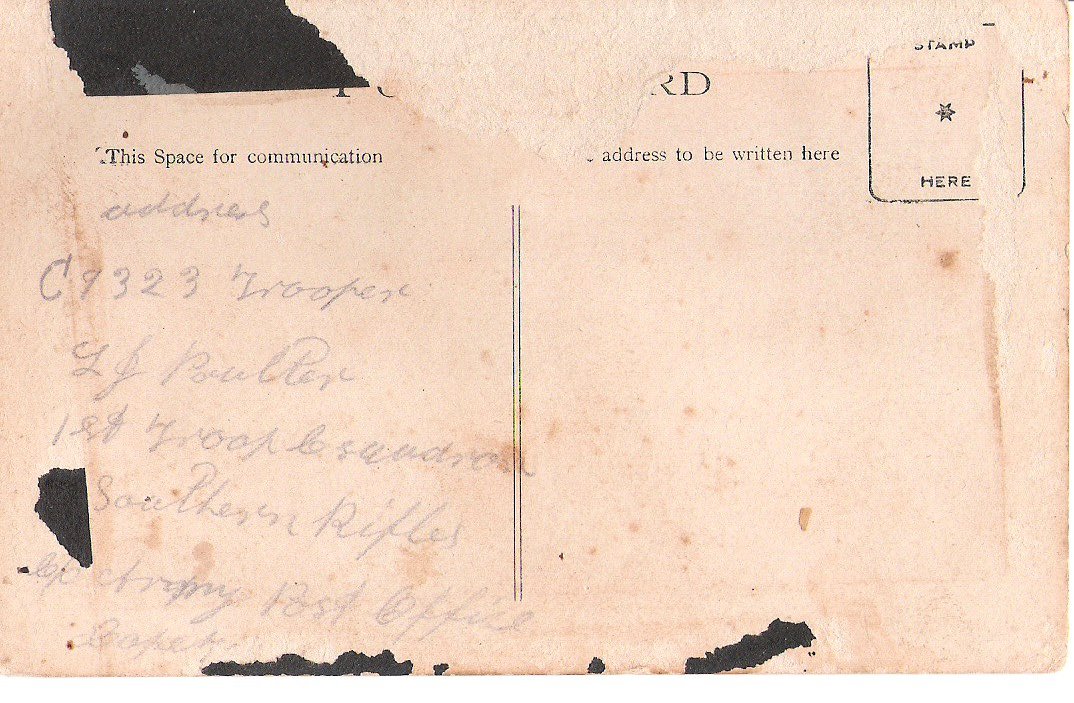 STAMP
RD
This Space for communication
address to be written here
HERE
address
C 9323 Trooper
L J Poulter
1st Troop C squadron
Southern Rifles
Army Post Office